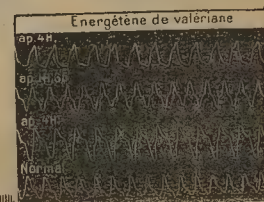 Energétène de valériane
ap. 4H.
ap.
ap. 4H
Normal